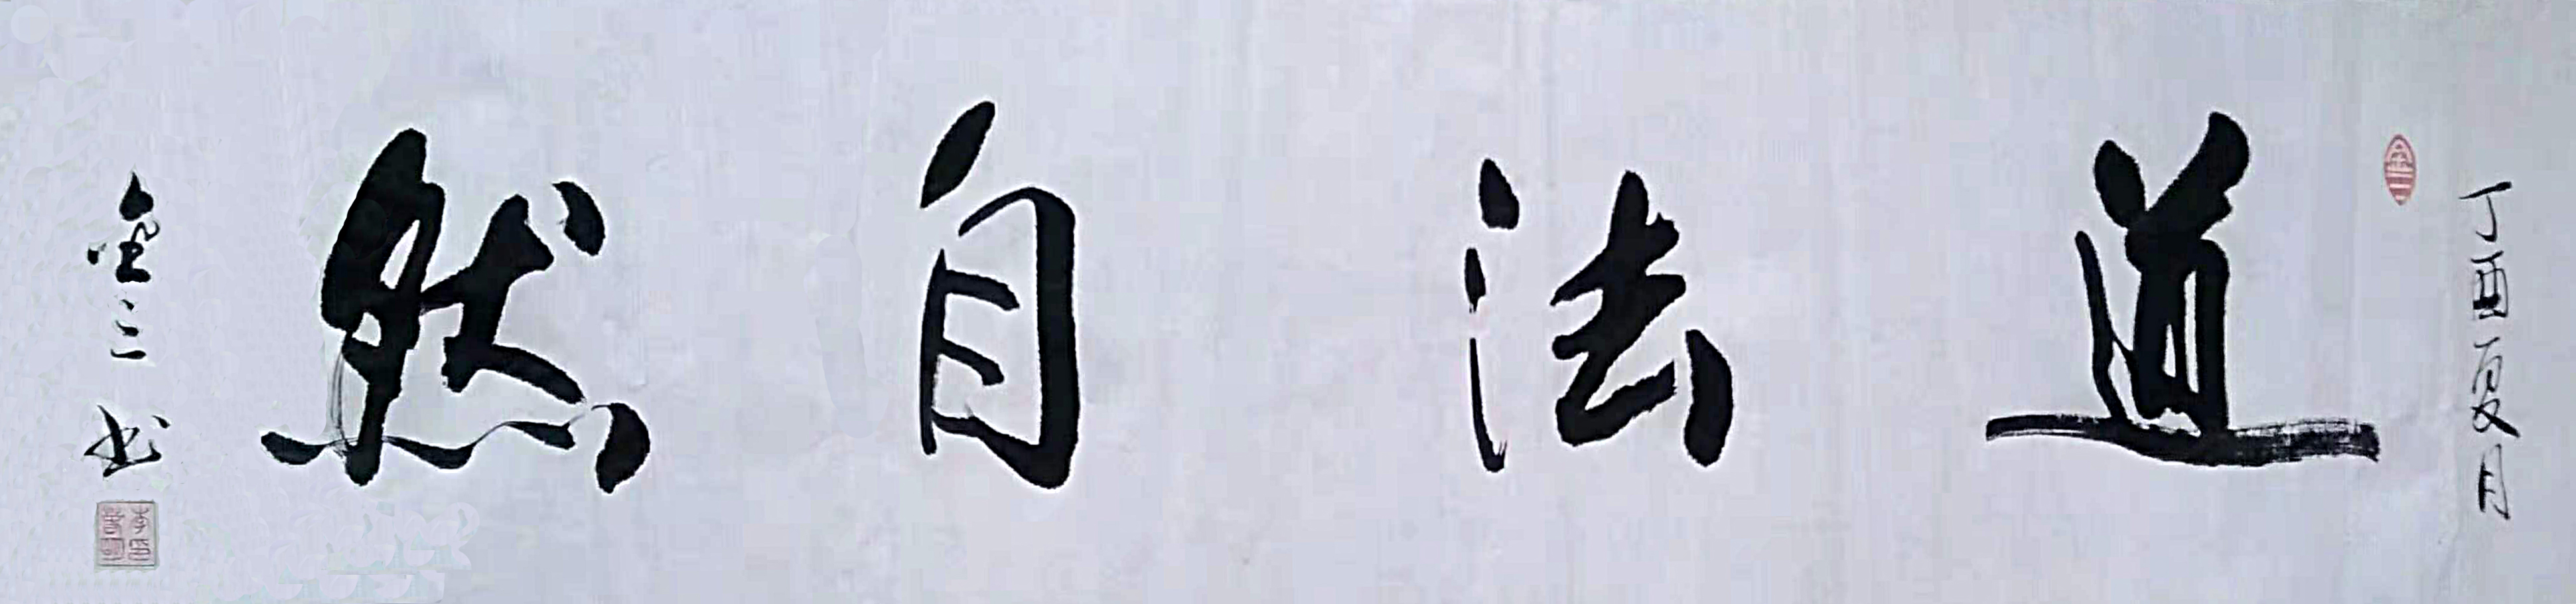 丁酉夏月
道法自然
金三书